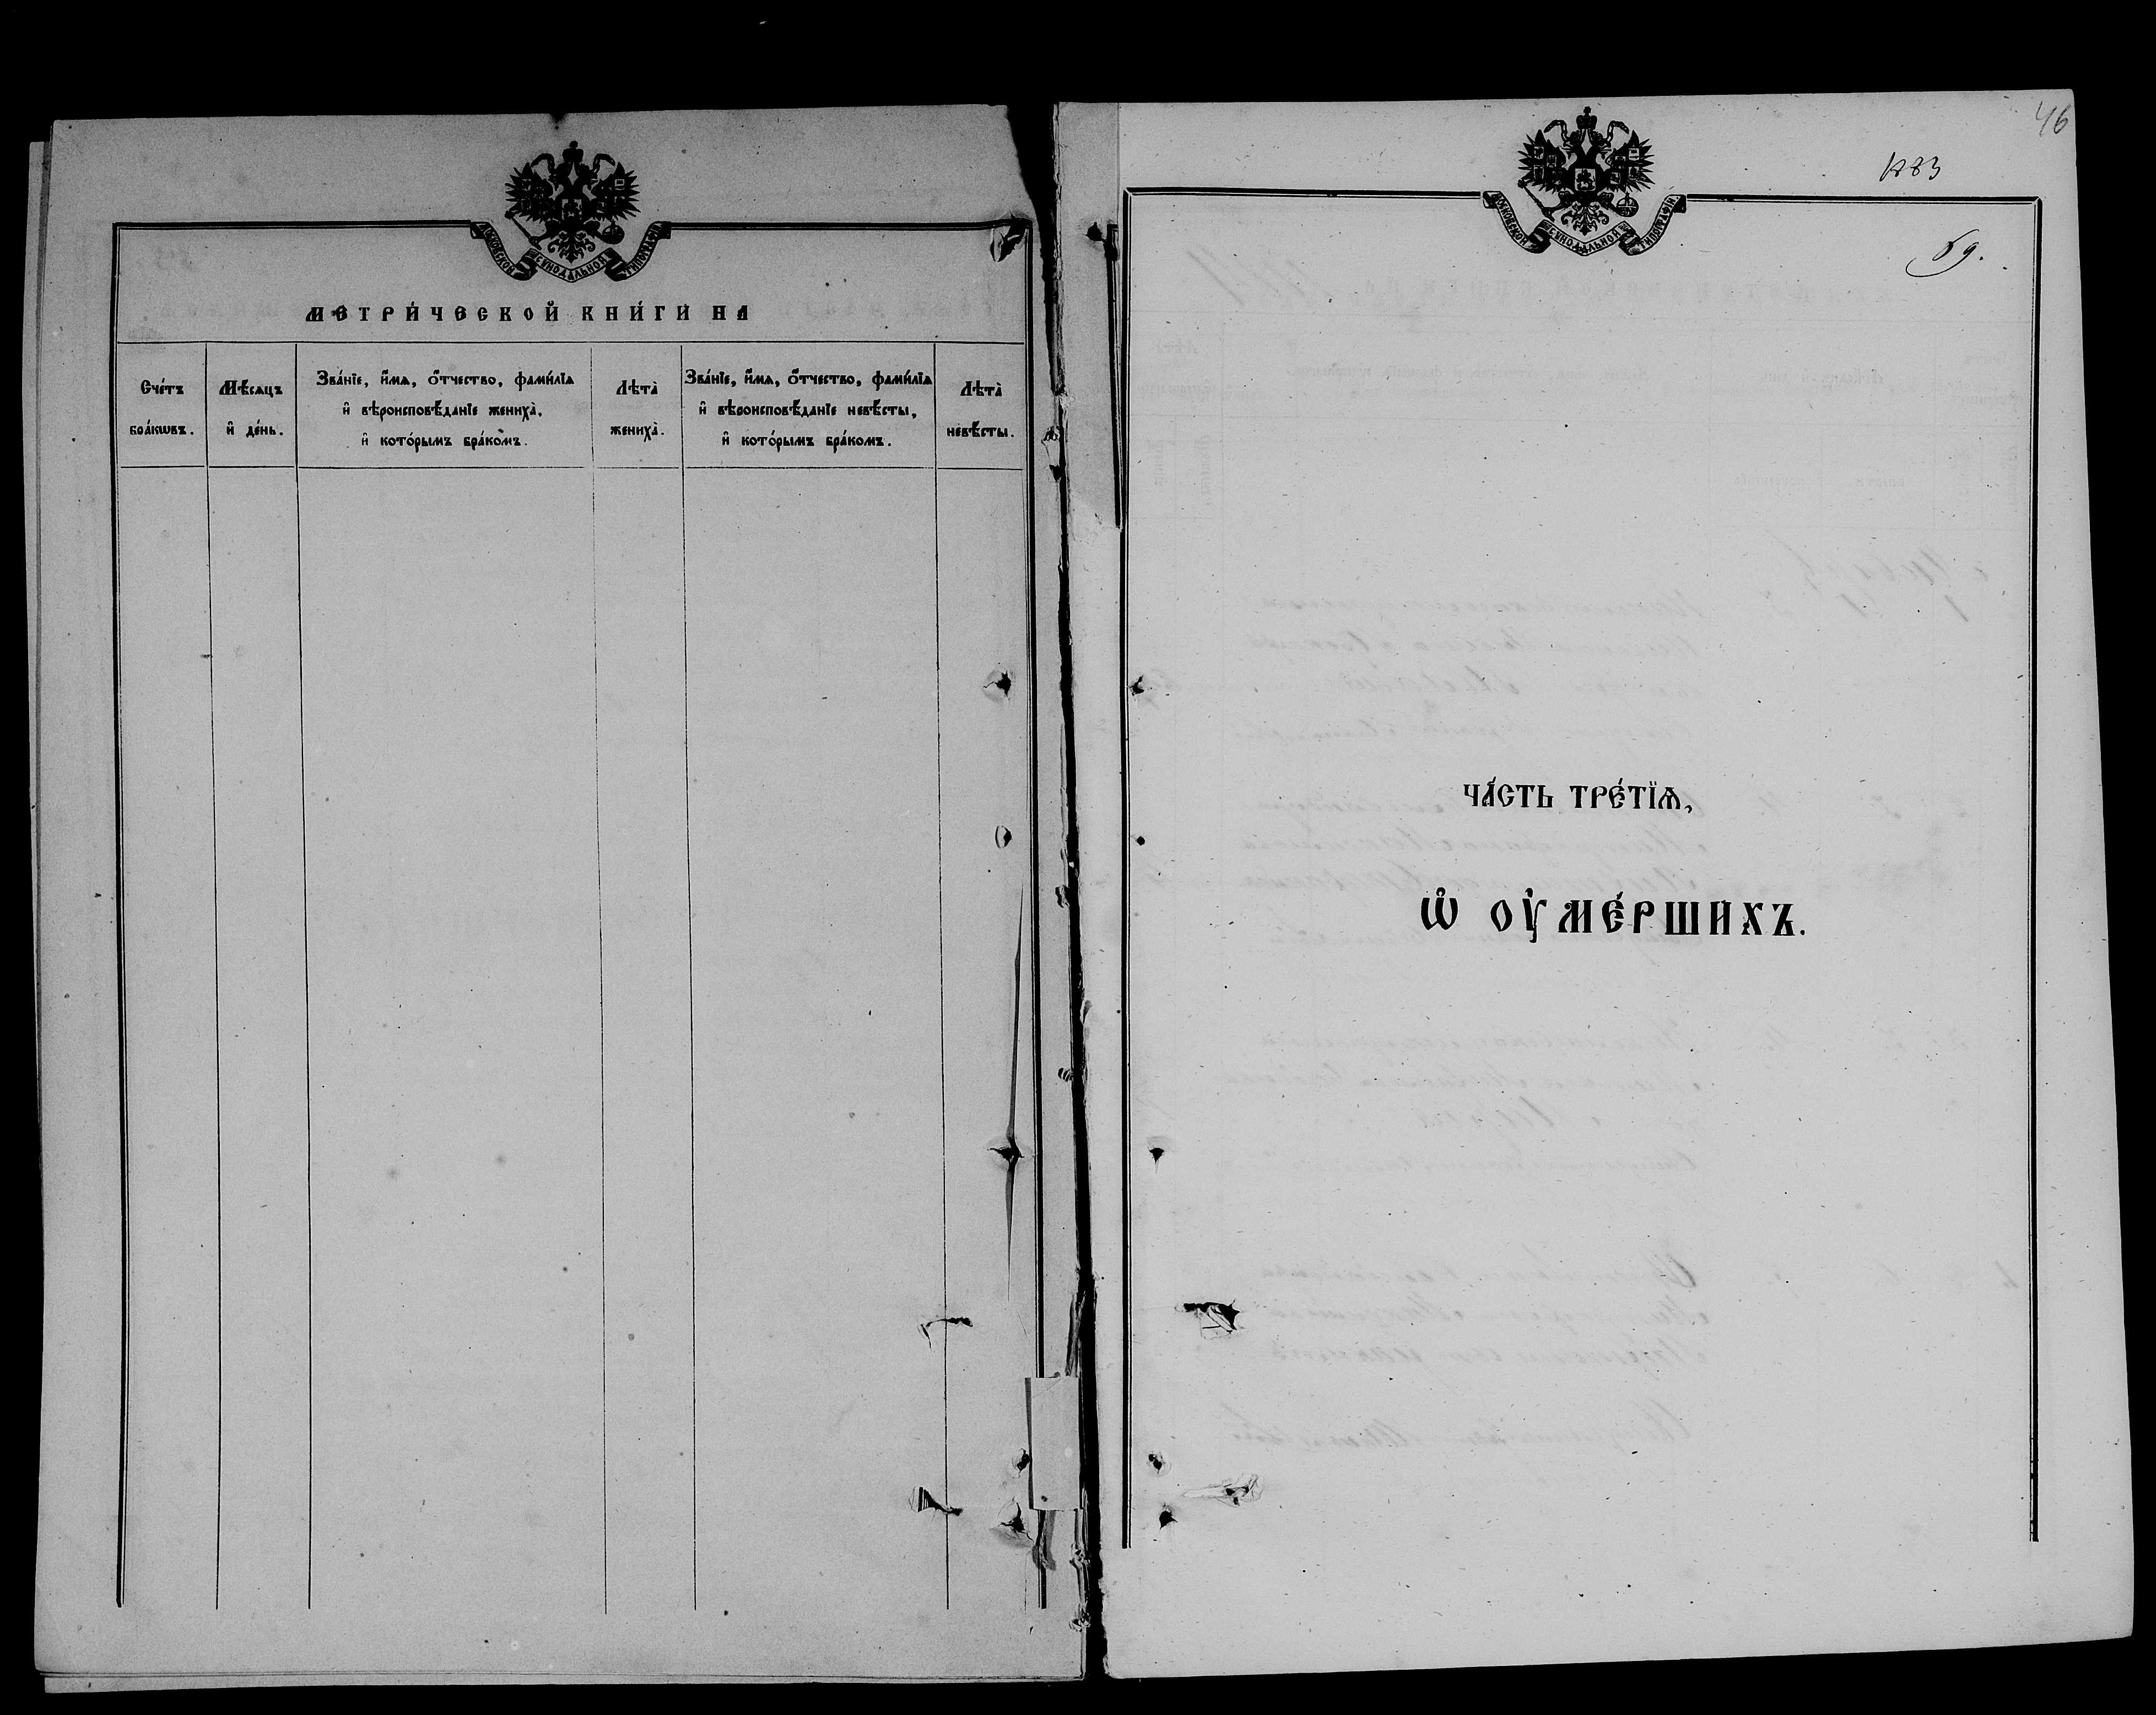 МОСКОВСКОЙ СѴНОДАЛЬНОЙ ТИПОГРАФІИ
МЕТРИ́ЧЕСКОЙ КНИ́ГИ НА
Сче́тъ
бра́кѡвъ.
Мѣ́сѧцъ
и҆ де́нь.
Зва́нїе, и҆́мѧ, ѻ҆́тчество, фами́лїѧ
и҆ вѣроисповѣ́данїе жениха̀,
и҆ кото́рымъ бра́комъ.
Лѣта̀
жениха̀.
Зва́нїе, и҆́мѧ, ѻ҆́тчество, фами́лїѧ
и҆ вѣроисповѣ́данїе невѣ́сты,
и҆ кото́рымъ бра́комъ.
Лѣта̀
невѣ́сты.
46
1883
МОСКОВСКОЙ СѴНОДАЛЬНОЙ ТИПОГРАФІИ
69.
ЧА́СТЬ ТРЕ́ТЇѦ,
Ѡ҆ ОУ҆МЕ́РШИХЪ.